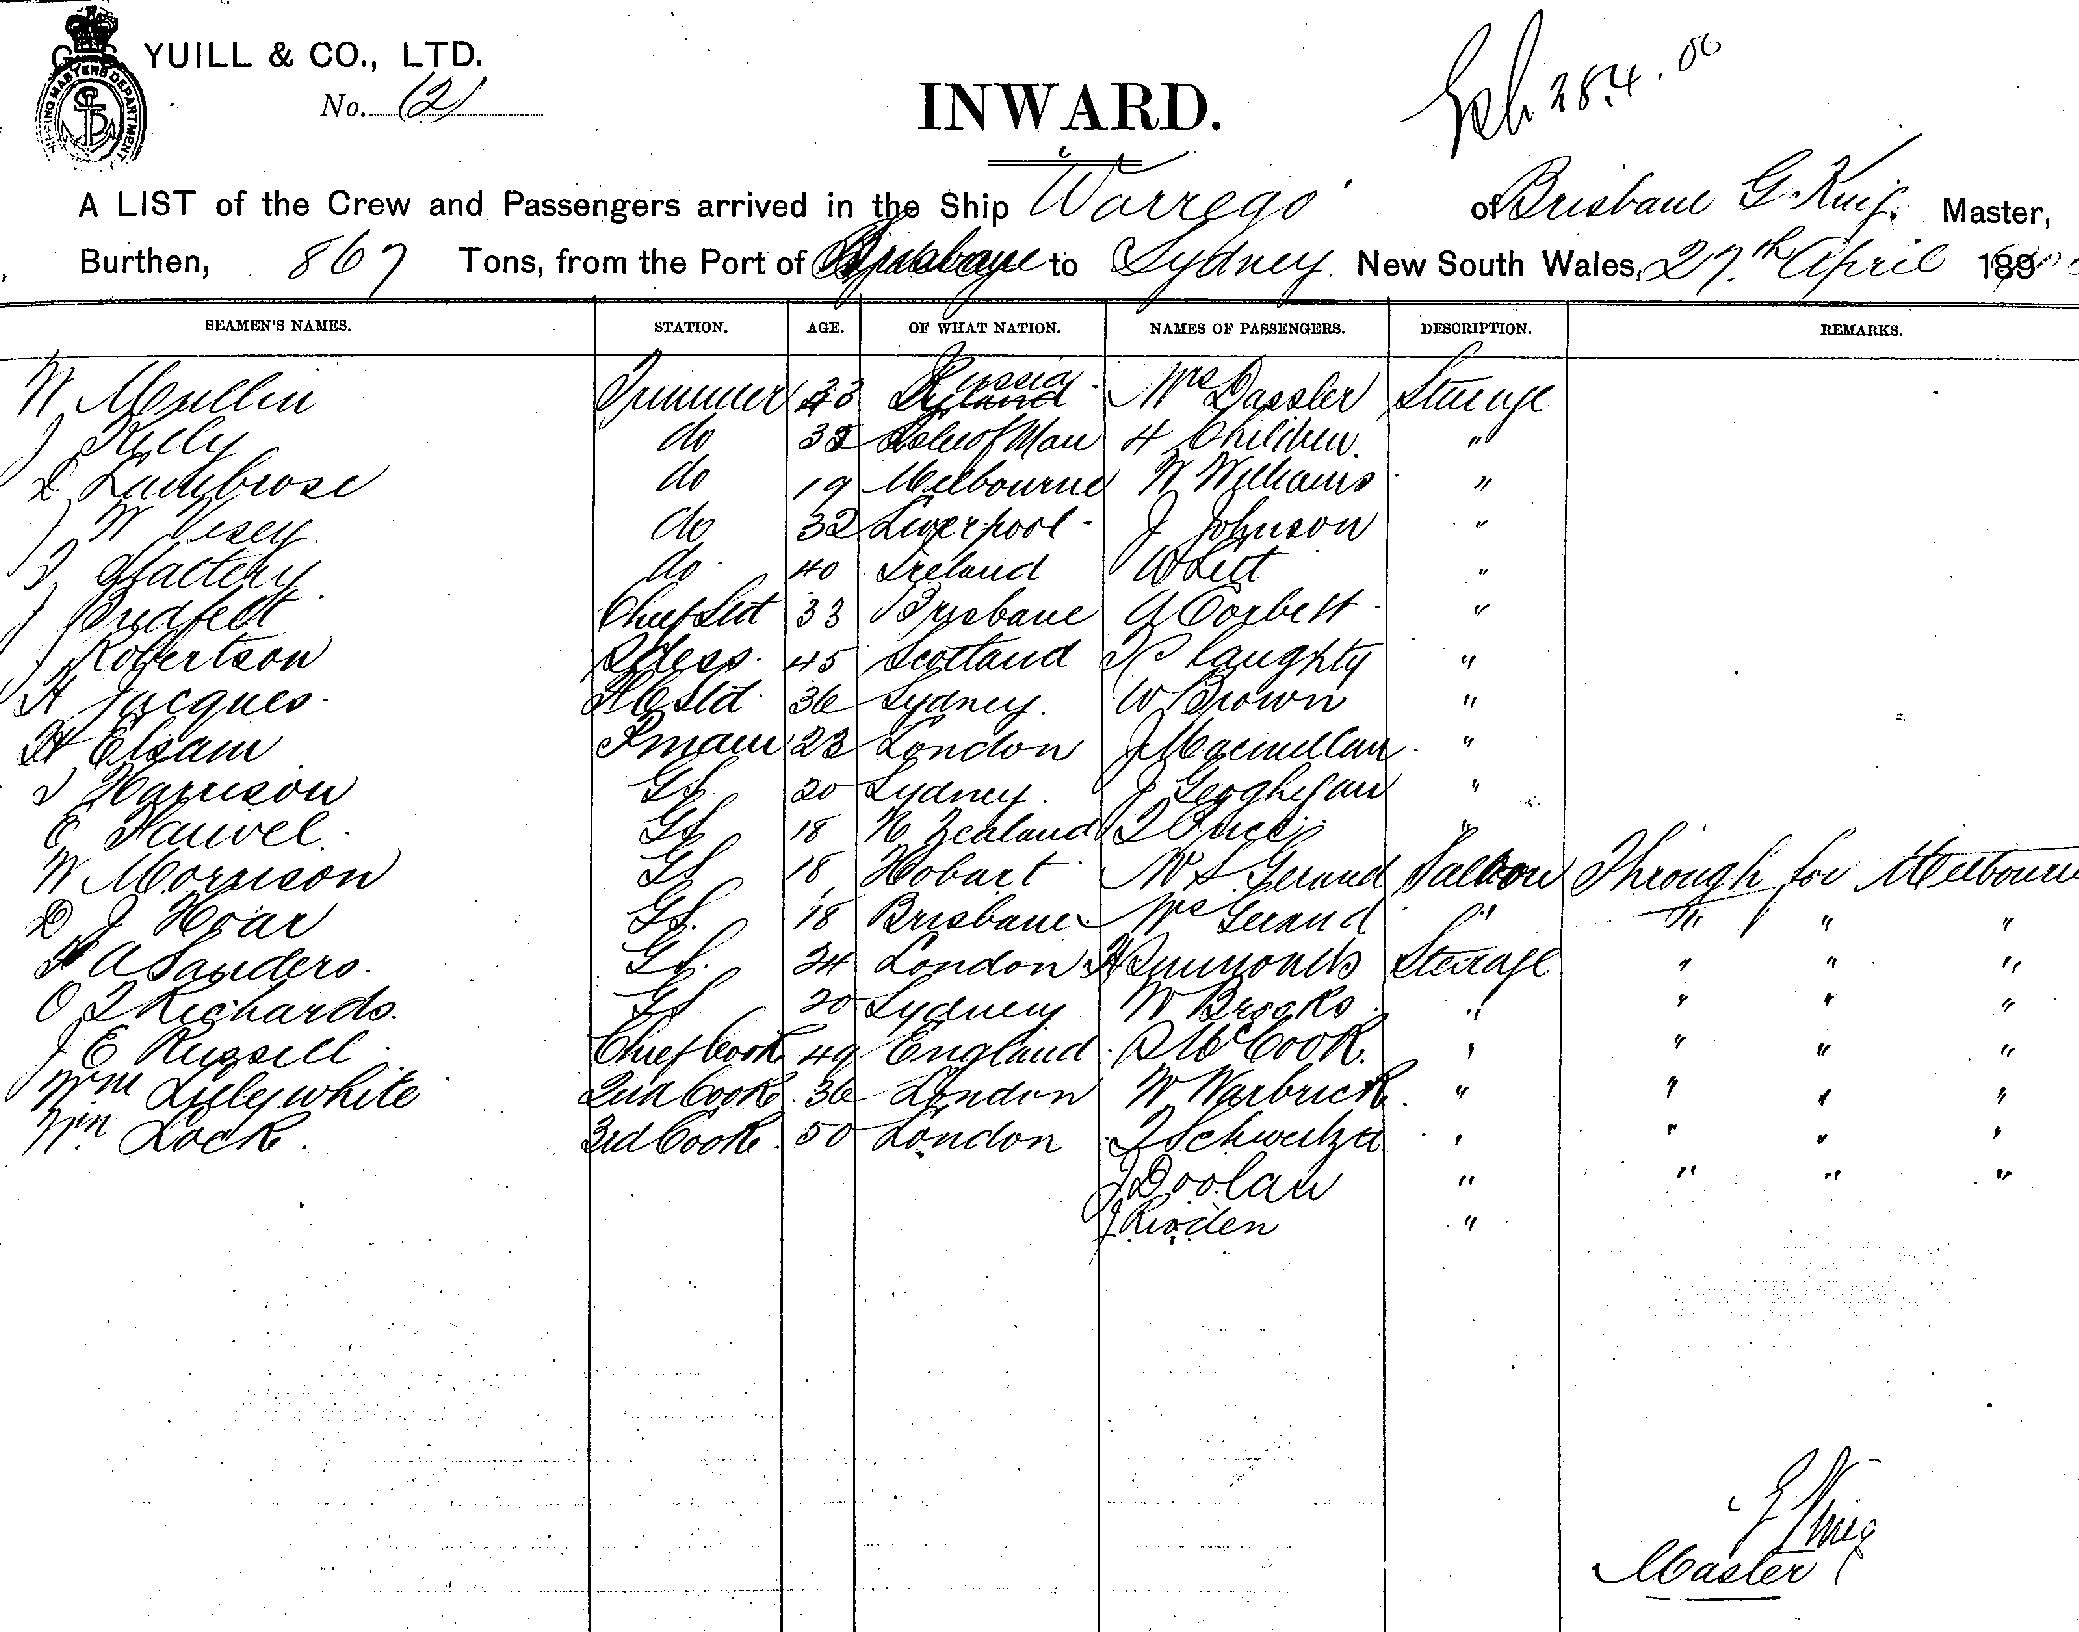 YUILL & CO., LTD.
No. (2)
INWARD.
28.4.00
A LIST of the Crew and Passengers arrived in the Ship Warrego of Brisbane G. King. Master,
Burthen, 867 Tons, from the Port of Brisbane to Sydney New South Wales, 27th April 1900
SEAMEN'S NAMES. STATION. AGE. OF WHAT NATION. NAMES OF PASSENGERS. DESCRIPTION. REMARKS.
W Mullin Trimmer 33 Russia Mrs Dassler Steerage
J Kelly do Isle of Man 4 Children. "
do 19 Melbourne W Williams "
J W Vesey do 32 Liverpool J Johnson "
T Slattery do 40 Ireland W Lett "
J Chief Std 33 Brisbane A Corbett "
J Robertson Stdess. 45 Scotland Claughty "
H Jacques. Std 36 Sydney. W Brown "
H Elsam Pman 23 London J Macmillan "
Harrison GS. 20 Sydney. J Geoghegan "
E Fauvel. GS 18 N Zealand "
W Morrison GS 18 Hobart Gerand Saloon Through for Melbourne
D J Hoar GS. 18 Brisbane Mrs Gerand " " " "
A Sanders. GS. 24 London H Simmonds Steerage " " "
O T Richards. GS 20 Sydney W Brooks " " " "
J E Russell Chief Cook 49 England McCook. " " " "
Wm Lilywhite 2nd Cook 36 London W Warbrick " " " "
Wm Lock. 3rd Cook 50 London Schweitzer " " " "
J Doolan " " " "
J Rioden "
G King
Master